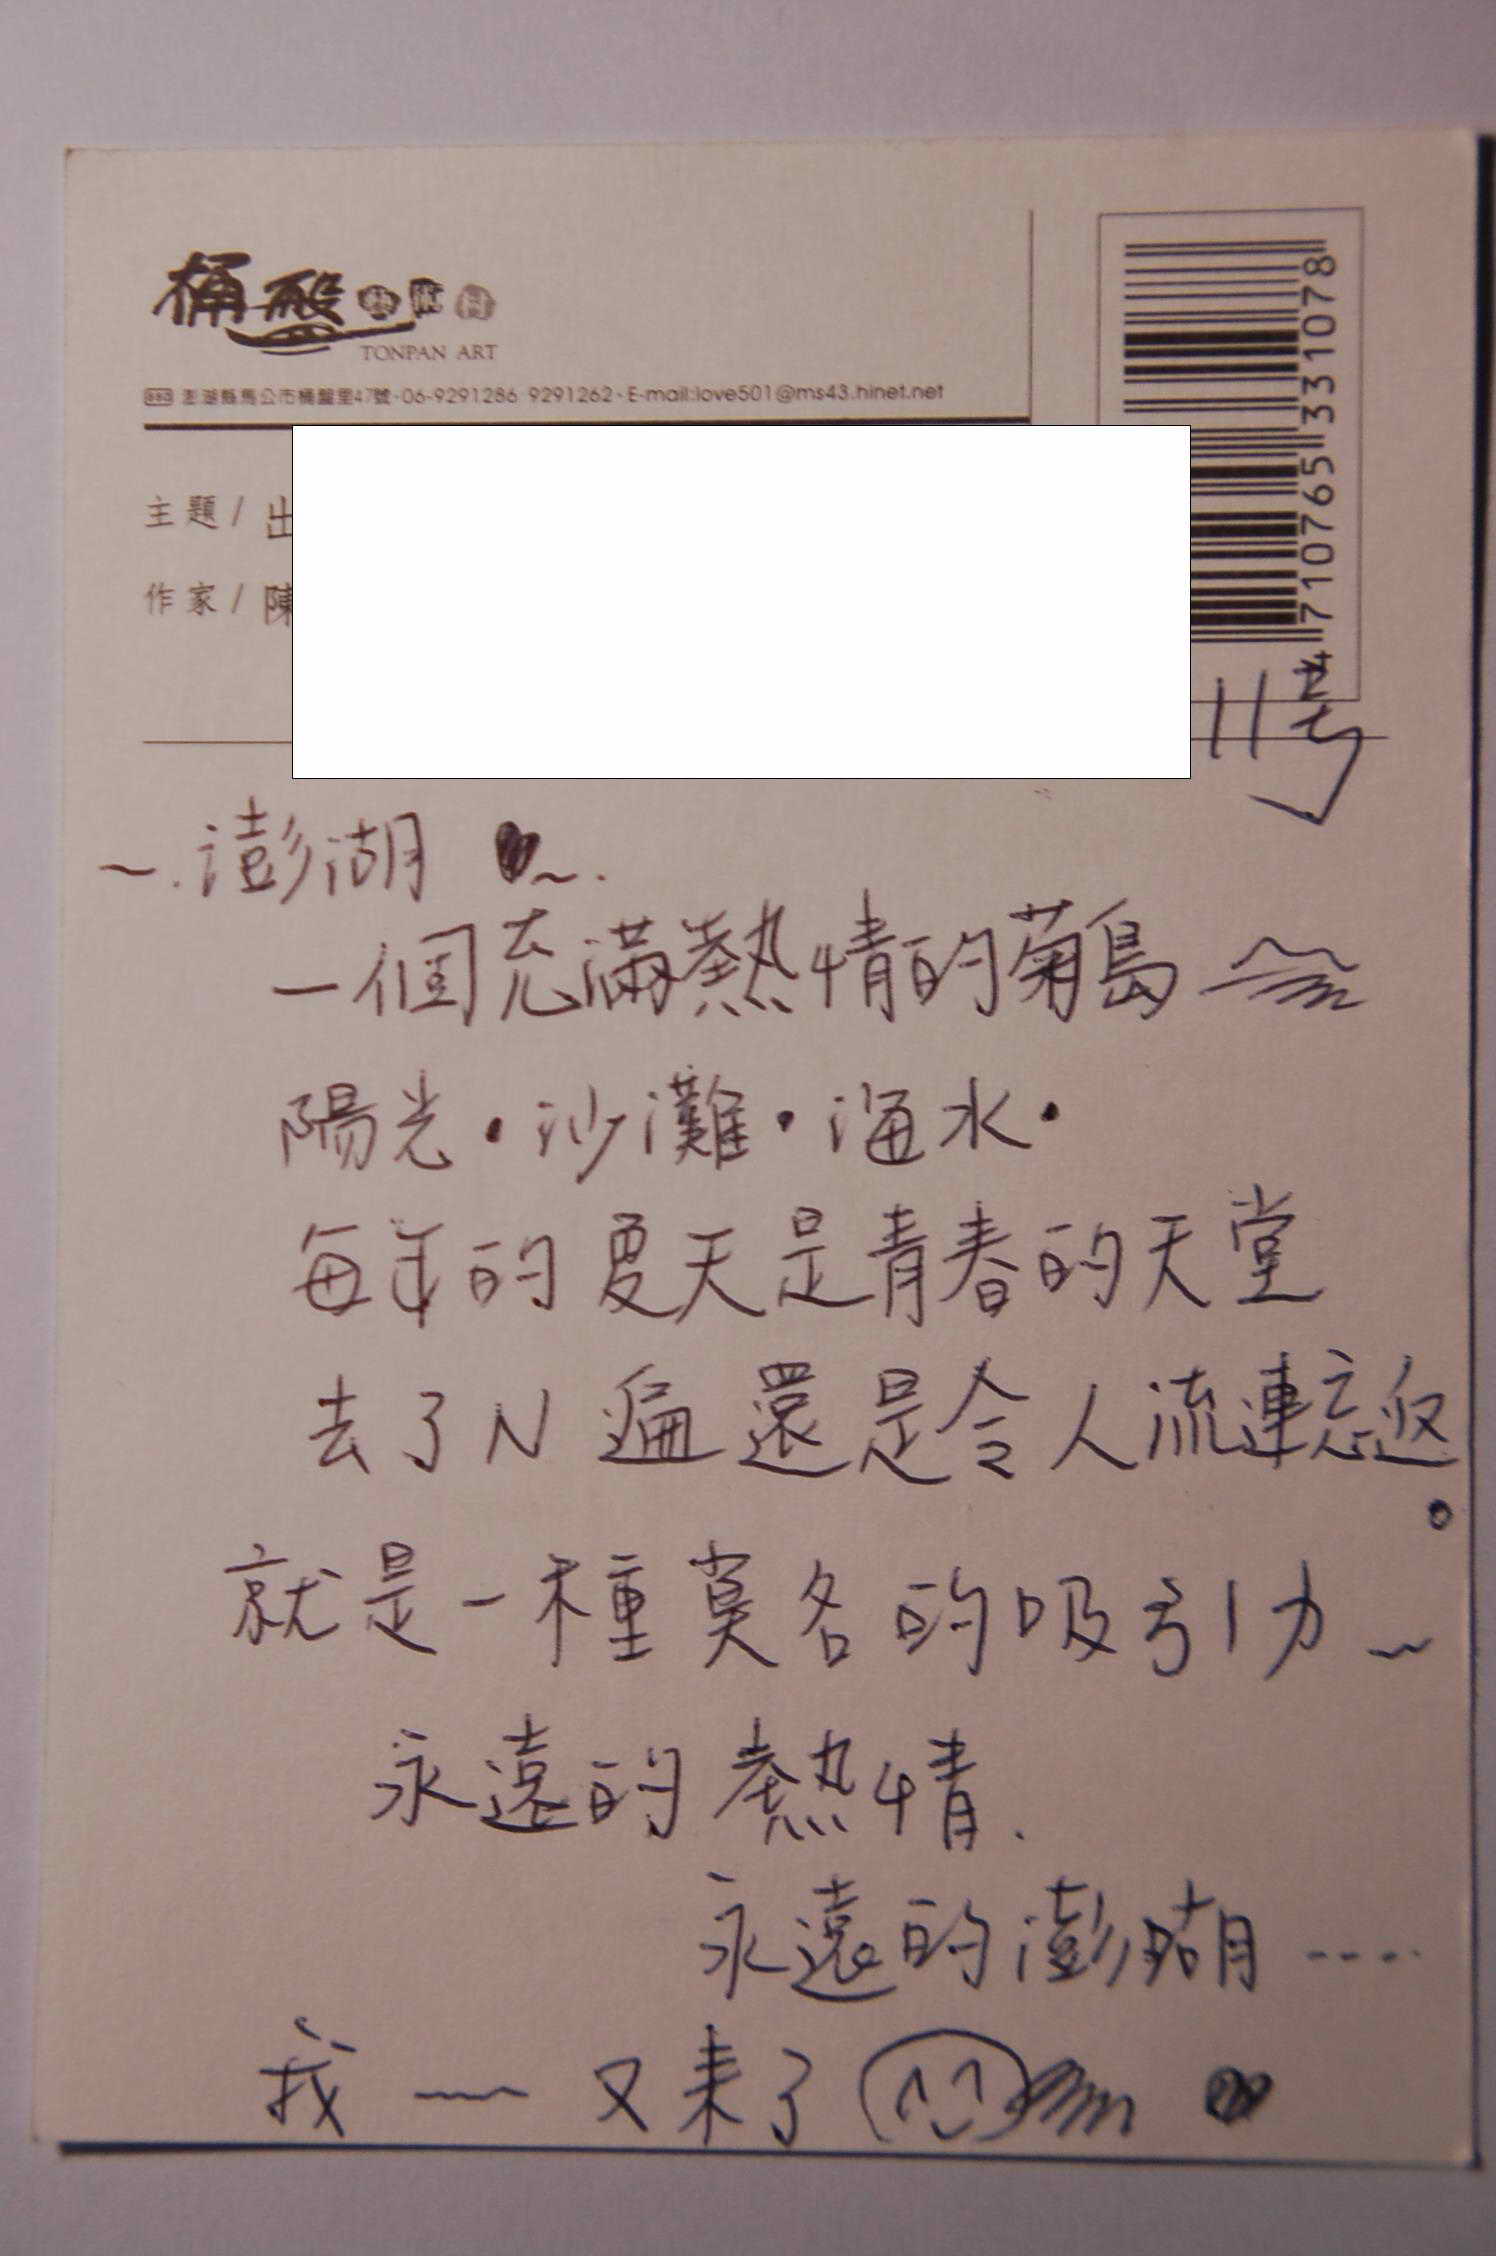 桶盤藝術村
TONPAN ART
澎湖縣馬公市桶盤里47號·06-9291286 9291262·E-mail:love501@ms43.hinet.net
4 710765 331078
主題/出
作家/陳
11号
~.澎湖 ~.
一個充滿熱情的菊島
陽光·沙灘·海水·
每年的夏天是青春的天堂
去了N遍還是令人流連忘返。
就是一種莫名的吸引力~
永遠的熱情.
永遠的澎湖----
我~又來了